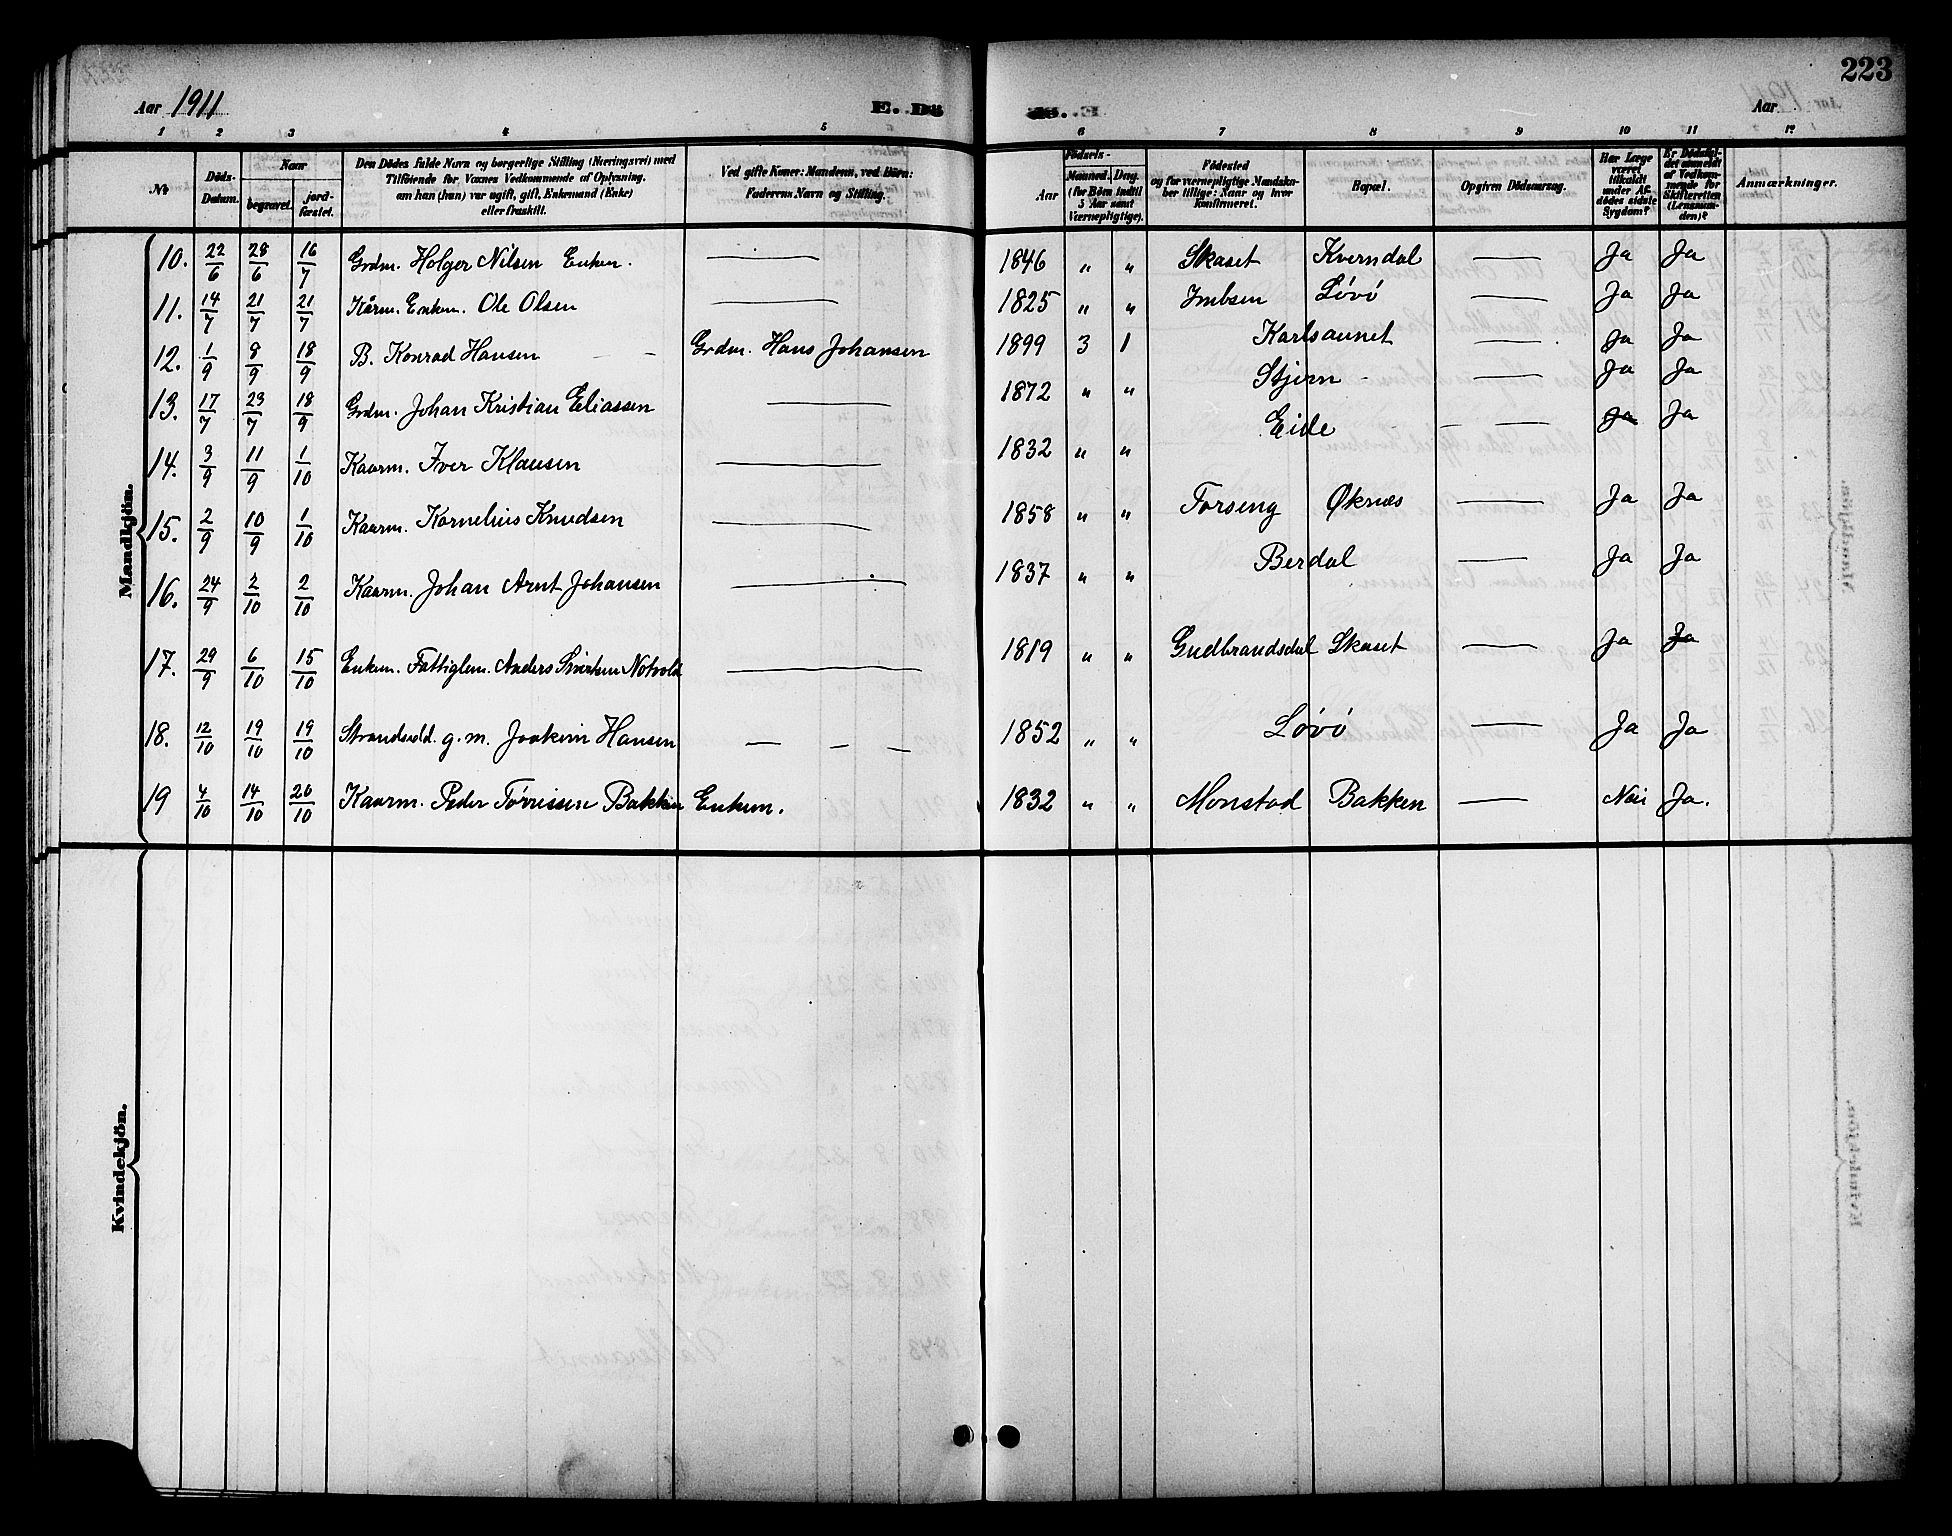 223
Aar 1911 E. Dö Aar
1 2 3 4 5 6 7 8 9 10 11 12
No Döds-Datum. Naar begravet. jord-fæstet. Den Dödes fulde Navn og borgerlige Stilling (Næringsvei) med Tilföiende for Voxnes Vedkommende af Oplysning, om han (hun) var ugift, gift, Enkemand (Enke) eller fraskilt. Ved gifte Koner: Mandens, ved Börn: Faderens Navn og Stilling. Födsels- Aar Maaned. Dag. (for Börn indtil 5 Aar samt Værnepligtige). Födested og for værnepligtige Mandskaber tillige: Naar og hvor konfirmeret. Bopæl. Opgiven Dödsaarsag. Har Læge været tilkaldt under Afdödes sidste Sygdom? Er Dödsfaldet anmeldt af Vedkommende for Skifteretten (Lensmanden)? Anmærkninger.
Mandkjön.
10. 22/6 28/6 16/7 Grdm. Holger Nilsen Enkem. — 1846 " " Skaset Kverndal — Ja Ja
11. 14/7 21/7 21/7 Kårm. Enkem. Ole Olsen — 1825 " " Imbsen Løvø — Ja Ja
12. 1/9 8/9 18/9 B. Konrad Hansen — — Grdm. Hans Johansen 1899 3 1 Karlsaunet — Ja Ja
13. 17/7 23/7 18/9 Grdm. Johan Kristian Eliassen — 1872 " " Stjern — Ja Ja
14. 3/9 11/9 1/10 Kaarm. Iver Klausen — 1832 " " Eide — — Ja Ja
15. 2/9 10/9 1/10 Kaarm. Kornelius Knudsen — 1858 " " Forseng Øknæs — Ja Ja
16. 24/9 2/10 2/10 Kaarm. Johan Arnt Johansen — 1837 " " Berdal — Ja Ja
17. 29/9 6/10 15/10 Enkem. Fattiglem. Anders — 1819 " " Gudbrandsdal Skaset — Ja Ja
18. 12/10 19/10 19/10 Strandsidd. g. m. Joakim Hansen — — — 1852 " " Løvø — Ja Ja
19 4/10 14/10 20/10 Kaarm. Peder Tørrissen Bakken Enkem. 1832 " " Monstad Bakken — Nei Ja.
Kvindekjön.